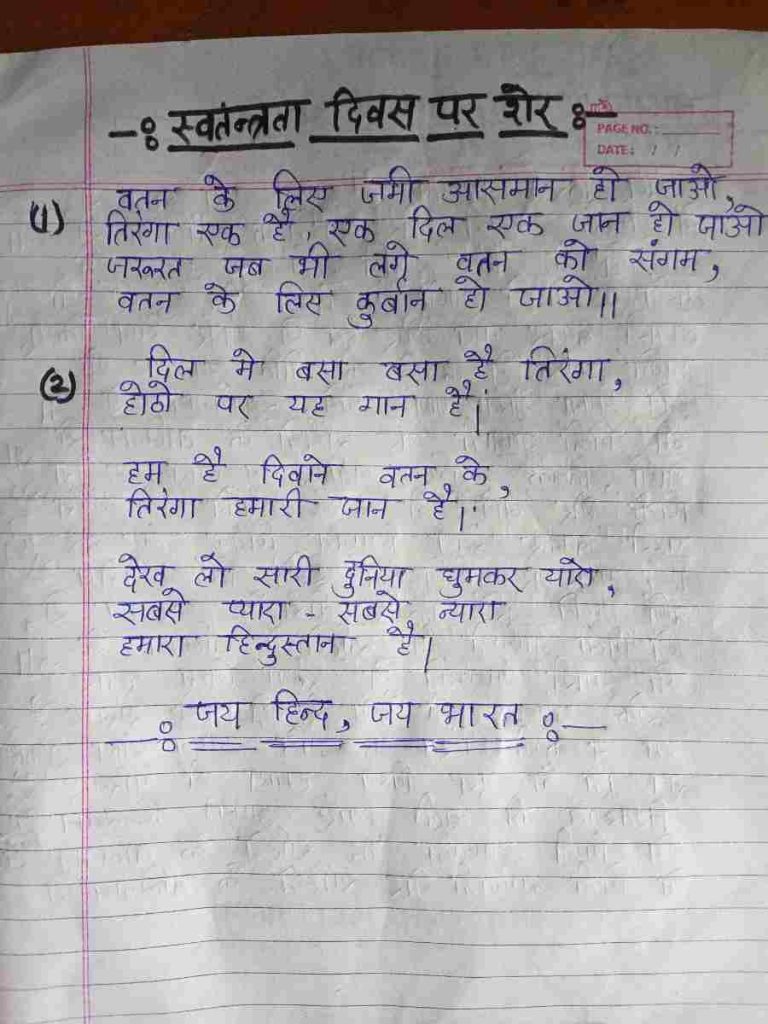 —: स्वतंन्त्रता दिवस पर शेर :—
PAGE NO.:
DATE: / /
(1) वतन के लिए जमी आसमान हो जाओ,
तिरंगा एक है, एक दिल एक जान हो जाओ
जरूरत जब भी लगे वतन को संगम,
वतन के लिए कुर्बान हो जाओ॥
(2) दिल मे बसा बसा है तिरंगा,
होठो पर यह गान है।
हम है दिवाने वतन के,
तिरंगा हमारी जान है।
देख लो सारी दुनिया घुमकर यारो,
सबसे प्यारा - सबसे न्यारा
हमारा हिन्दुस्तान है।
—: जय हिन्द, जय भारत :—